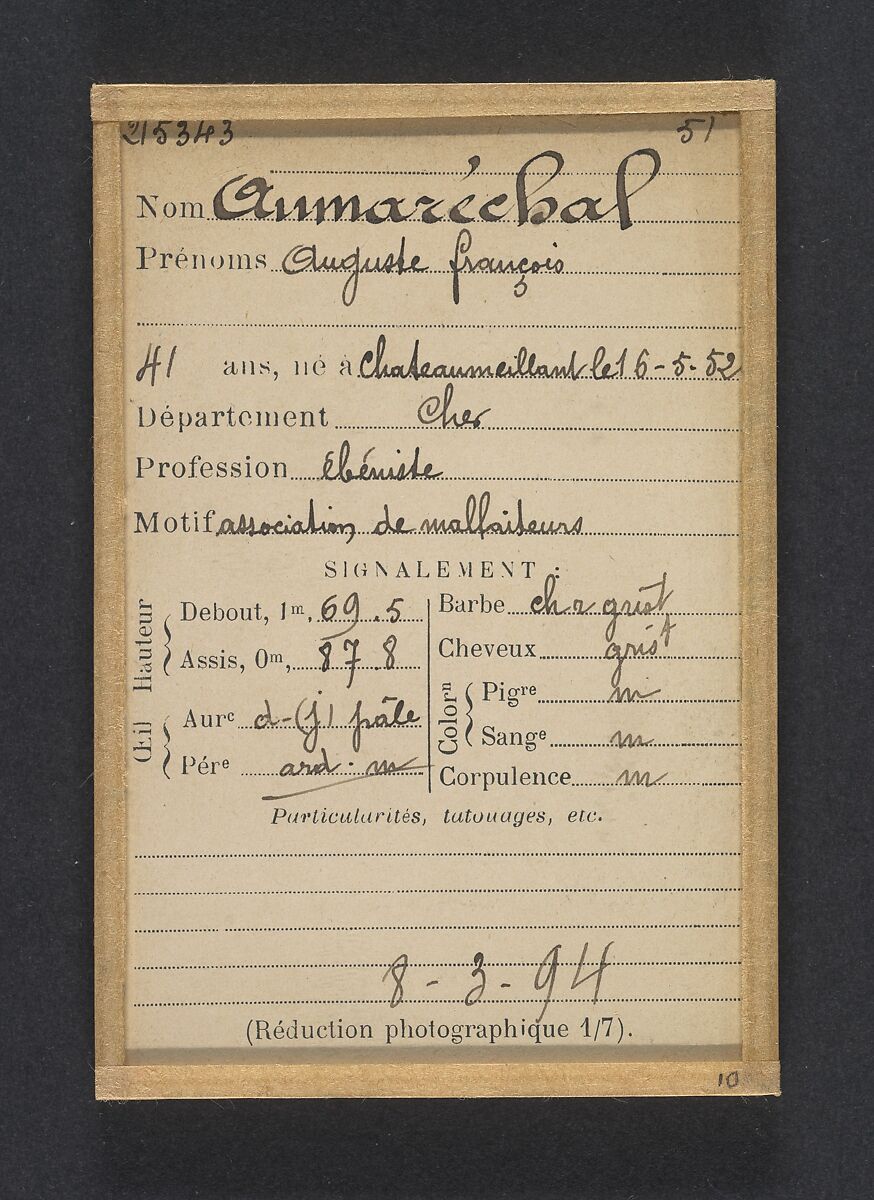 215343 51
Nom Aumaréchal
Prénoms Auguste françois
41 ans, né à Chateaumeillant le 16-5-52
Département Cher
Profession ébéniste
Motif association de malfaiteurs
SIGNALEMENT :
Hauteur
Debout, 1m, 69.5
Assis, 0m, 87.8
Œil
Aurᵉ d-(j) pâle
Pérᵉ ard. m
Barbe ch r grist
Cheveux grist
Colorⁿ
Pigʳᵉ m
Sangᵉ m
Corpulence m
Particularités, tatouages, etc.
8-3-94
(Réduction photographique 1/7).
10